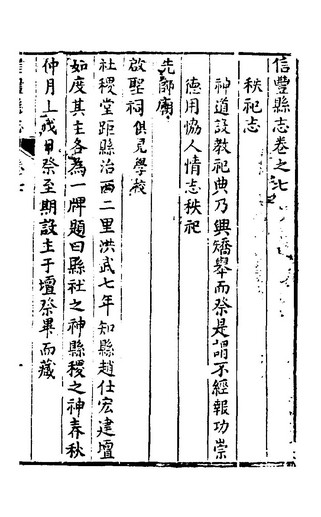 信豐縣志卷之七
秩祀志
神道設教祀典乃興矯舉而祭是謂不經報功崇
德用協人情志秩祀
先師廟
啟聖祠俱見學校
社稷堂距縣治西二里洪武七年知縣趙仕宏建壇
如度其主各為一牌題曰縣社之神縣稷之神春秋
仲月上戊日祭至期設主于壇祭畢而藏